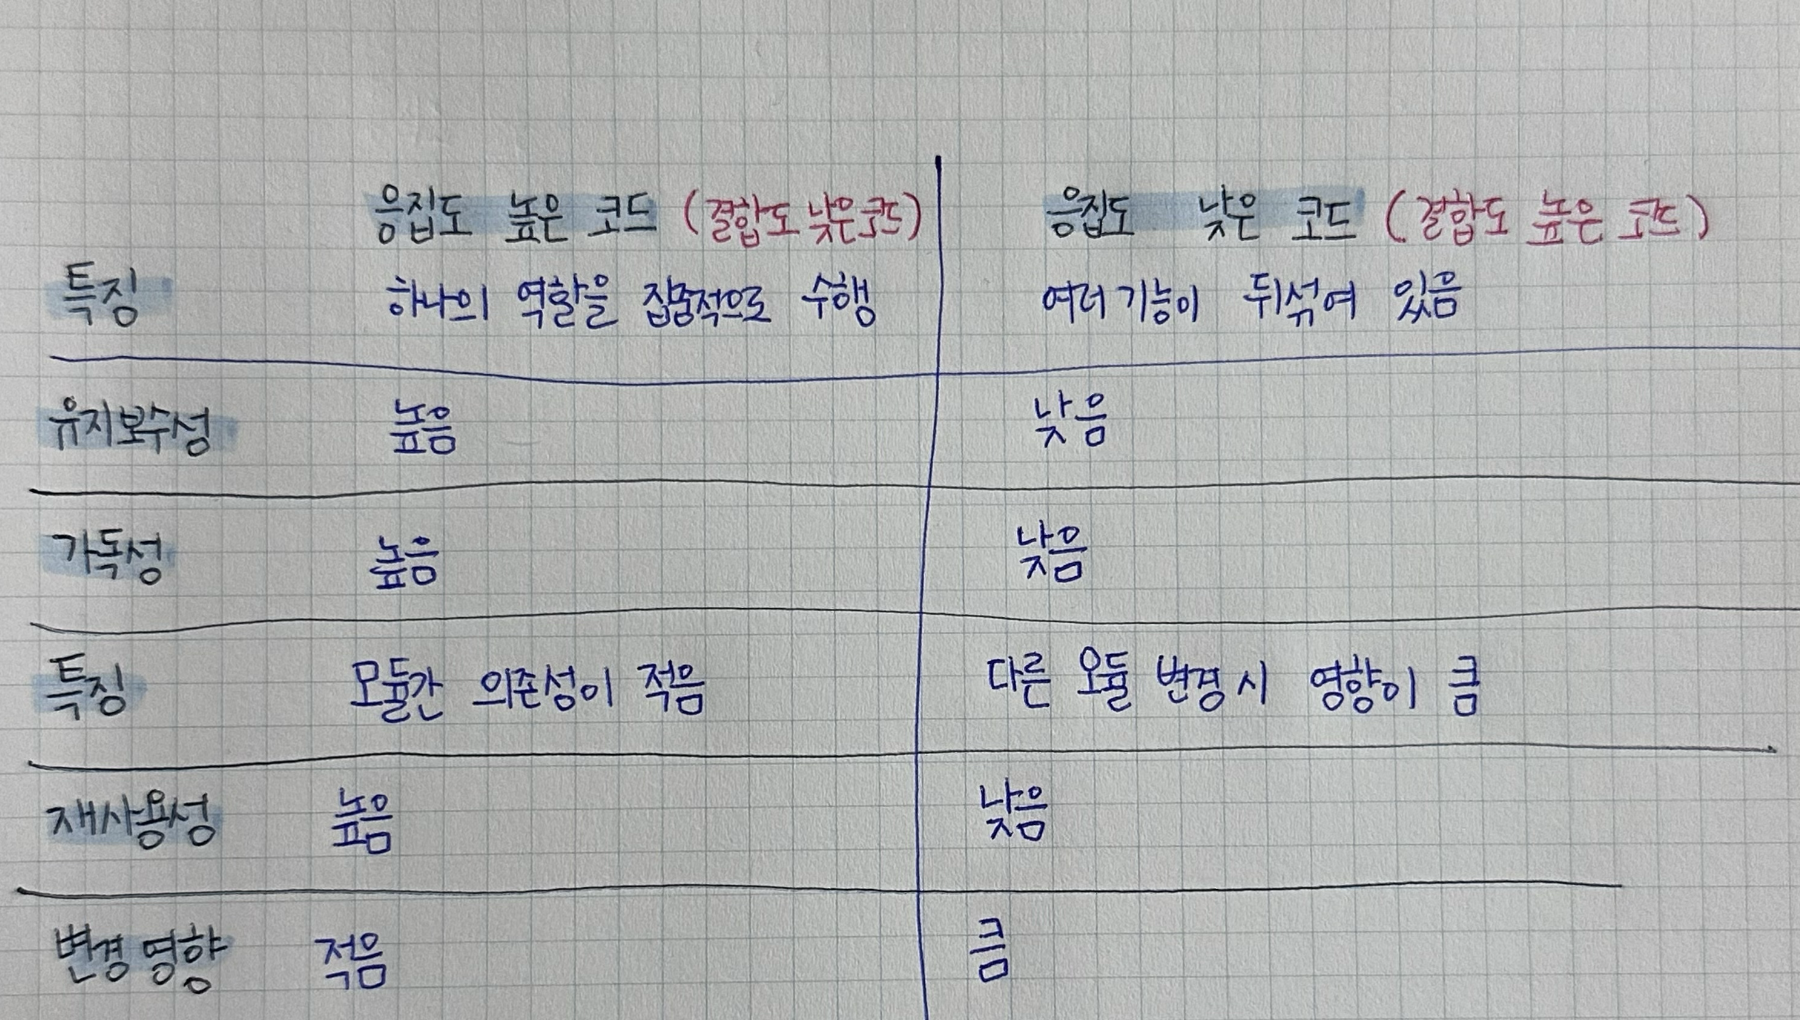 응집도 높은 코드 (결합도 낮은 코드) 응집도 낮은 코드 (결합도 높은 코드)
특징 하나의 역할을 집중적으로 수행 여러 기능이 뒤섞여 있음
유지보수성 높음 낮음
가독성 높음 낮음
특징 모듈간 의존성이 적음 다른 모듈 변경 시 영향이 큼
재사용성 높음 낮음
변경 영향 적음 큼